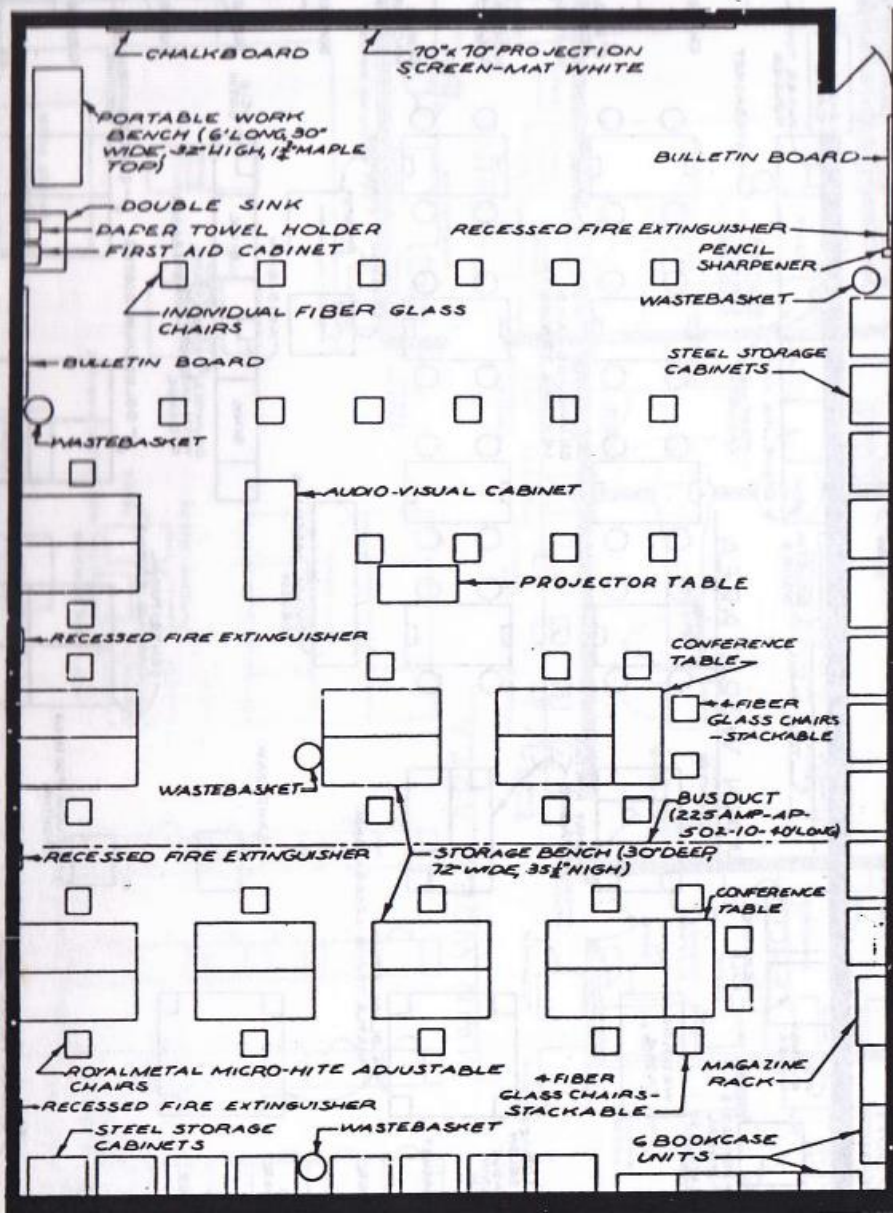 CHALKBOARD
70"x 70" PROJECTION
SCREEN-MAT WHITE
PORTABLE WORK
BENCH (6' LONG, 30"
WIDE, 32" HIGH, 1½" MAPLE
TOP)
BULLETIN BOARD
DOUBLE SINK
PAPER TOWEL HOLDER
FIRST AID CABINET
RECESSED FIRE EXTINGUISHER
PENCIL
SHARPENER
WASTEBASKET
INDIVIDUAL FIBER GLASS
CHAIRS
BULLETIN BOARD
STEEL STORAGE
CABINETS
WASTEBASKET
AUDIO-VISUAL CABINET
PROJECTOR TABLE
RECESSED FIRE EXTINGUISHER
CONFERENCE
TABLE
4-FIBER
GLASS CHAIRS
-STACKABLE
WASTEBASKET
BUS DUCT
(225 AMP-AP-
502-10-40'LONG)
RECESSED FIRE EXTINGUISHER
STORAGE BENCH (30" DEEP,
72" WIDE, 35½" HIGH)
CONFERENCE
TABLE
ROYALMETAL MICRO-HITE ADJUSTABLE
CHAIRS
4-FIBER
GLASS CHAIRS-
STACKABLE
MAGAZINE
RACK
RECESSED FIRE EXTINGUISHER
STEEL STORAGE
CABINETS
WASTEBASKET
6 BOOKCASE
UNITS